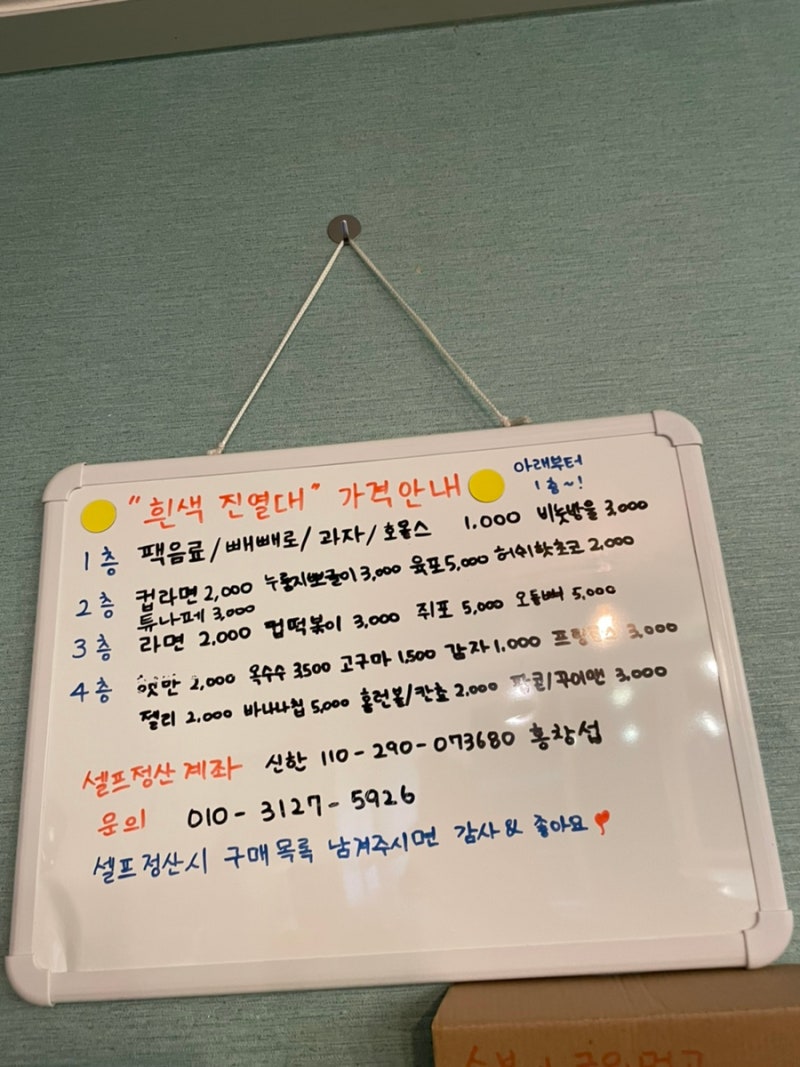 "흰색 진열대" 가격안내
아래부터
1층~!
1층 팩음료/빼빼로/과자/호올스 1,000 비눗방울 3,000
2층 컵라면 2,000 누룽지뽀글이 3,000 육포 5,000 허쉬핫초코 2,000
튜나페 3,000
3층 라면 2,000 컵떡볶이 3,000 쥐포 5,000 오돌뼈 5,000
4층 햇반 2,000 옥수수 3,500 고구마 1,500 감자 1,000 프링글스 3,000
젤리 2,000 바나나칩 5,000 홈런볼/칸쵸 2,000 팝콘/꾸이맨 3,000
셀프정산 계좌 신한 110-290-073680 홍창섭
문의 010-3127-5926
셀프정산시 구매목록 남겨주시면 감사 & 좋아요